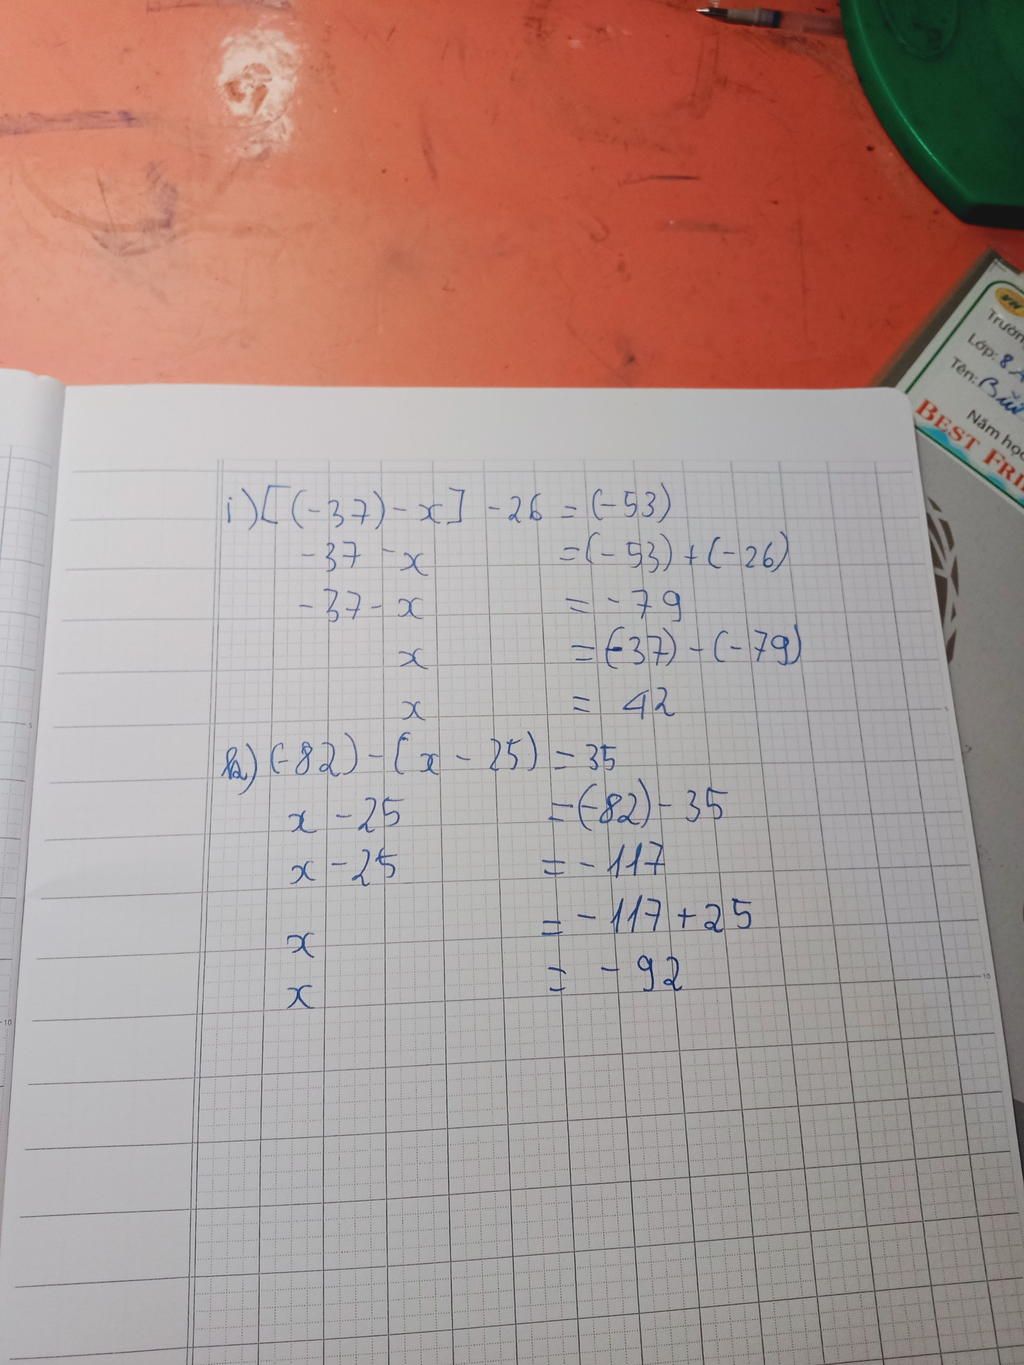 i) [(-37) - x] - 26 = (-53)
-37 - x = (-53) + (-26)
-37 - x = -79
x = (-37) - (-79)
x = 42
k) (-82) - (x - 25) = 35
x - 25 = (-82) - 35
x - 25 = -117
x = -117 + 25
x = -92
VH
Lớp: 8A
Tên: Bùi
Năm học
BEST
5
10
10